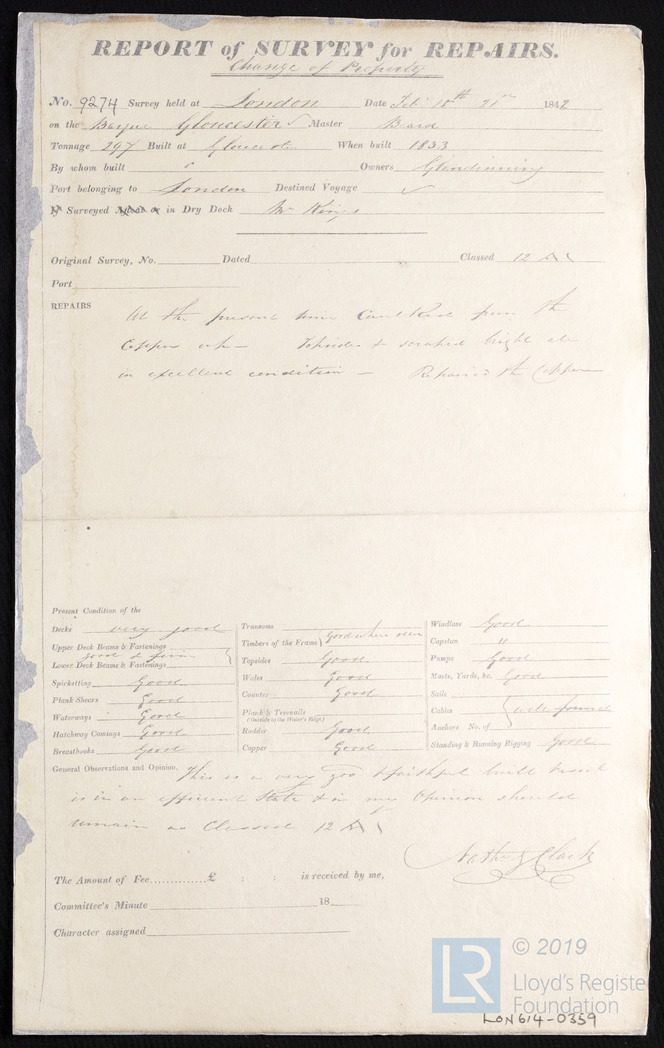 REPORT of SURVEY for REPAIRS.
Change of Property
No. 9274 Survey held at London Date Feb 18th 21st 1842
on the Barque Gloucester Master Beard
Tonnage 297 Built at Gloucester When built 1833
By whom built Owners Glendinning
Port belonging to London Destined Voyage ✓
If Surveyed Afloat or in Dry Dock Mr Kings
Original Survey, No. Dated Classed 12 A1
Port
REPAIRS At the present time Caulked from the
Copper up — Topsides & scraped bright all
in excellent condition — Repaired the Copper
Present Condition of the
Decks very good
Upper Deck Beams & Fastenings
good & firm
Lower Deck Beams & Fastenings
Spicketting Good
Plank Shears Good
Waterways Good
Hatchway Comings Good
Breasthooks Good
Transoms
Timbers of the Frame Good where seen
Topsides Good
Wales Good
Counter Good
Plank & Treenails
(Outside to the Water's Edge.)
Rudder Good
Copper Good
Windlass Good
Capstan "
Pumps Good
Masts, Yards, &c. Good
Sails
Cables well found
Anchors No. of
Standing & Running Rigging Good
General Observations and Opinion, This is a very good & faithful built vessel
is in an efficient State & in my Opinion should
remain as Classed 12 A1
Nathl Clark
The Amount of Fee..............£ : : is received by me,
Committee's Minute 18
Character assigned
LR
© 2019
Lloyd's Register
Foundation
LON614-0359